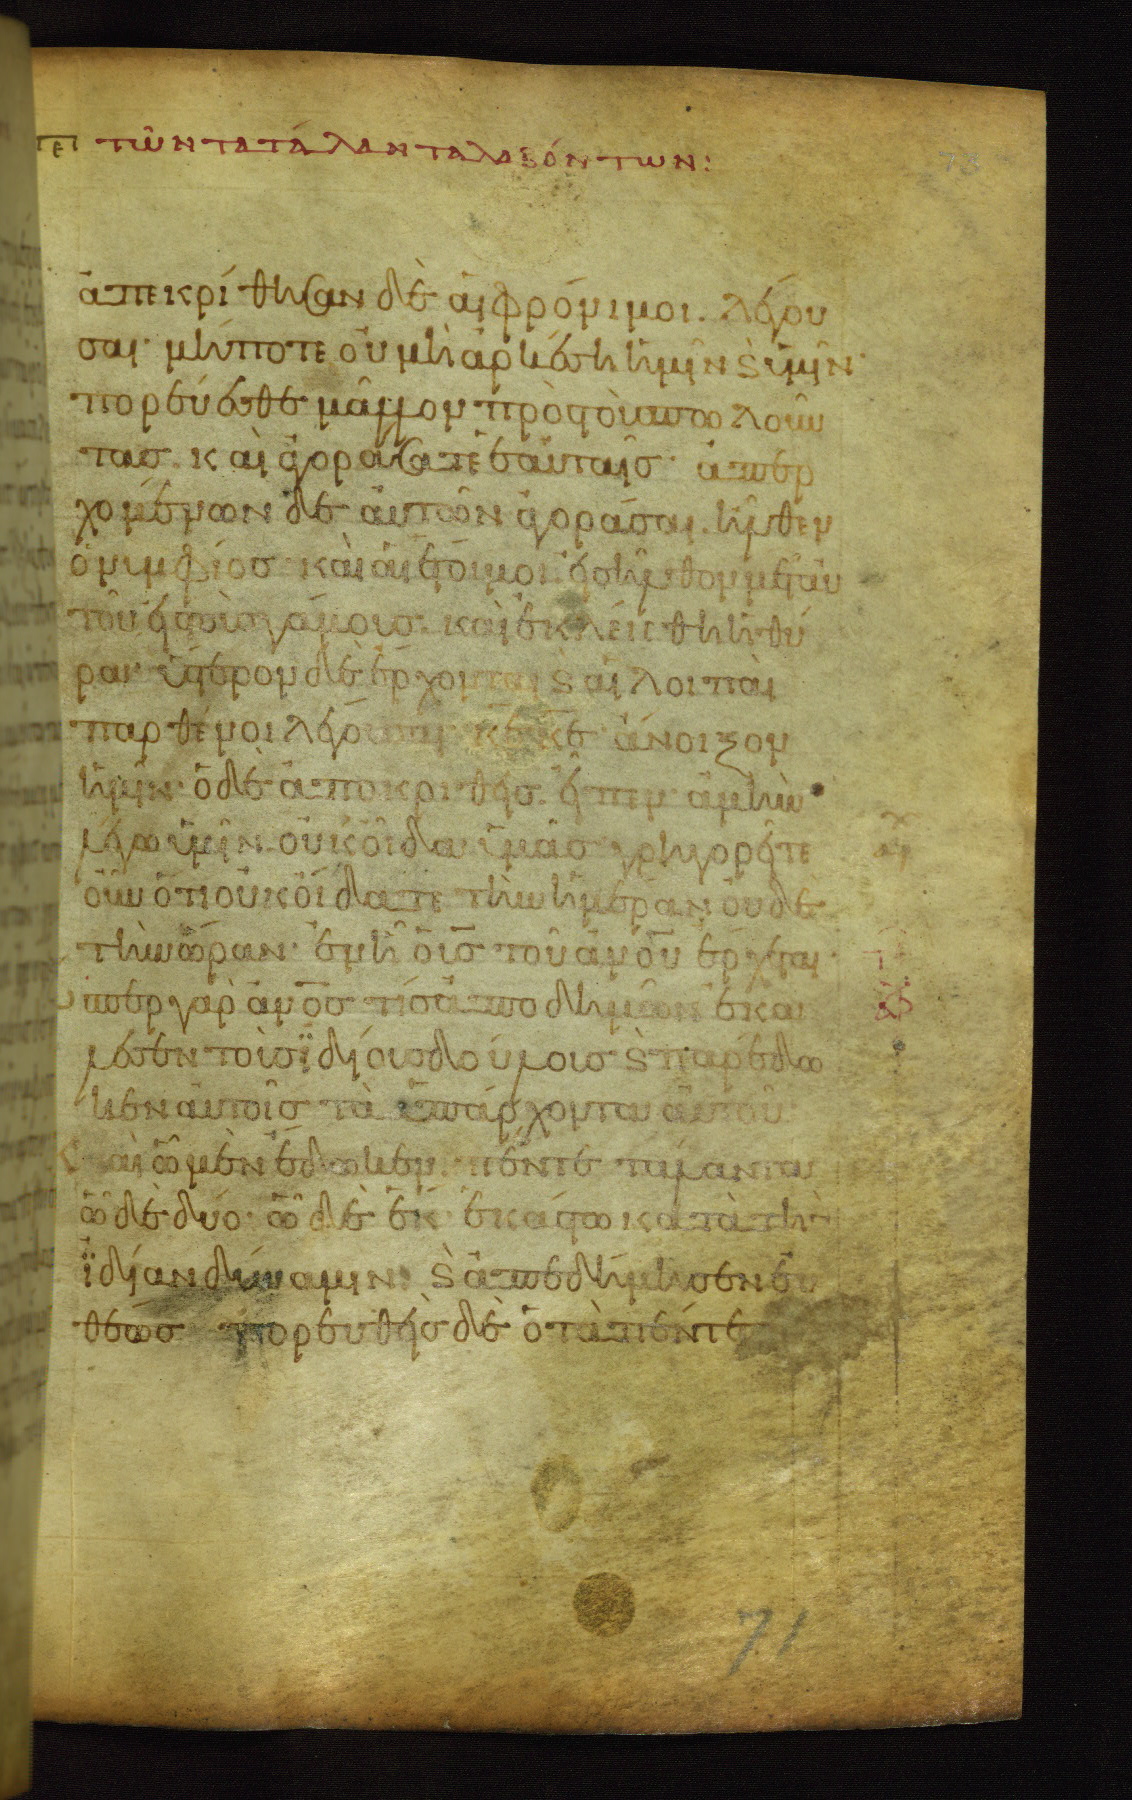 πε τῶν τὰ τάλαντα λαβόντων:
ἀπεκρίθησαν δὲ αἱ φρόνιμοι. λέγου
σαι· μήποτε οὐ μὴ ἀρκέσῃ ἡμῖν ϗ ὑμῖν·
πορεύεσθε μᾶλλον πρὸς τοὺς πωλοῦν
τας. καὶ ἀγοράσατε ἑαυταῖς· ἀπερ
χομένων δὲ αὐτῶν ἀγοράσαι. ἦλθεν
ὁ νυμφίος· καὶ αἱ ἕτοιμοι εἰσῆλθον μετ' αὐ
τοῦ εἰς τοὺς γάμους. καὶ ἐκλείσθη ἡ θύ
ρα· ὕστερον δὲ ἔρχονται ϗ αἱ λοιπαὶ
παρθένοι λέγουσαι· κ̅ε̅ κ̅ε̅ ἄνοιξον
ἡμῖν· ὁ δὲ ἀποκριθεὶς εἶπεν· ἀμὴν
λέγω ὑμῖν οὐκ οἶδα ὑμᾶς· γρηγορεῖτε
οὖν ὅτι οὐκ οἴδατε τὴν ἡμέραν οὐδὲ
τὴν ὥραν· ἐν ᾗ ὁ υ̅ς̅ τοῦ ἀν̅ο̅υ̅ ἔρχεται·
ὥσπερ γὰρ ἄν̅ο̅ς̅ τις ἀποδημῶν ἐκά
λεσεν τοὺς ἰδίους δούλους ϗ παρέδω
κεν αὐτοῖς τὰ ὑπάρχοντα αὐτοῦ·
καὶ ᾧ μὲν ἔδωκεν πέντε τάλαντα
ᾧ δὲ δύο· ᾧ δὲ ἕν· ἑκάστω κατὰ τὴν
ἰδίαν δύναμιν· ϗ ἀπεδήμησεν εὐ
θέως πορευθεὶς δὲ ὁ τὰ πέντε
71